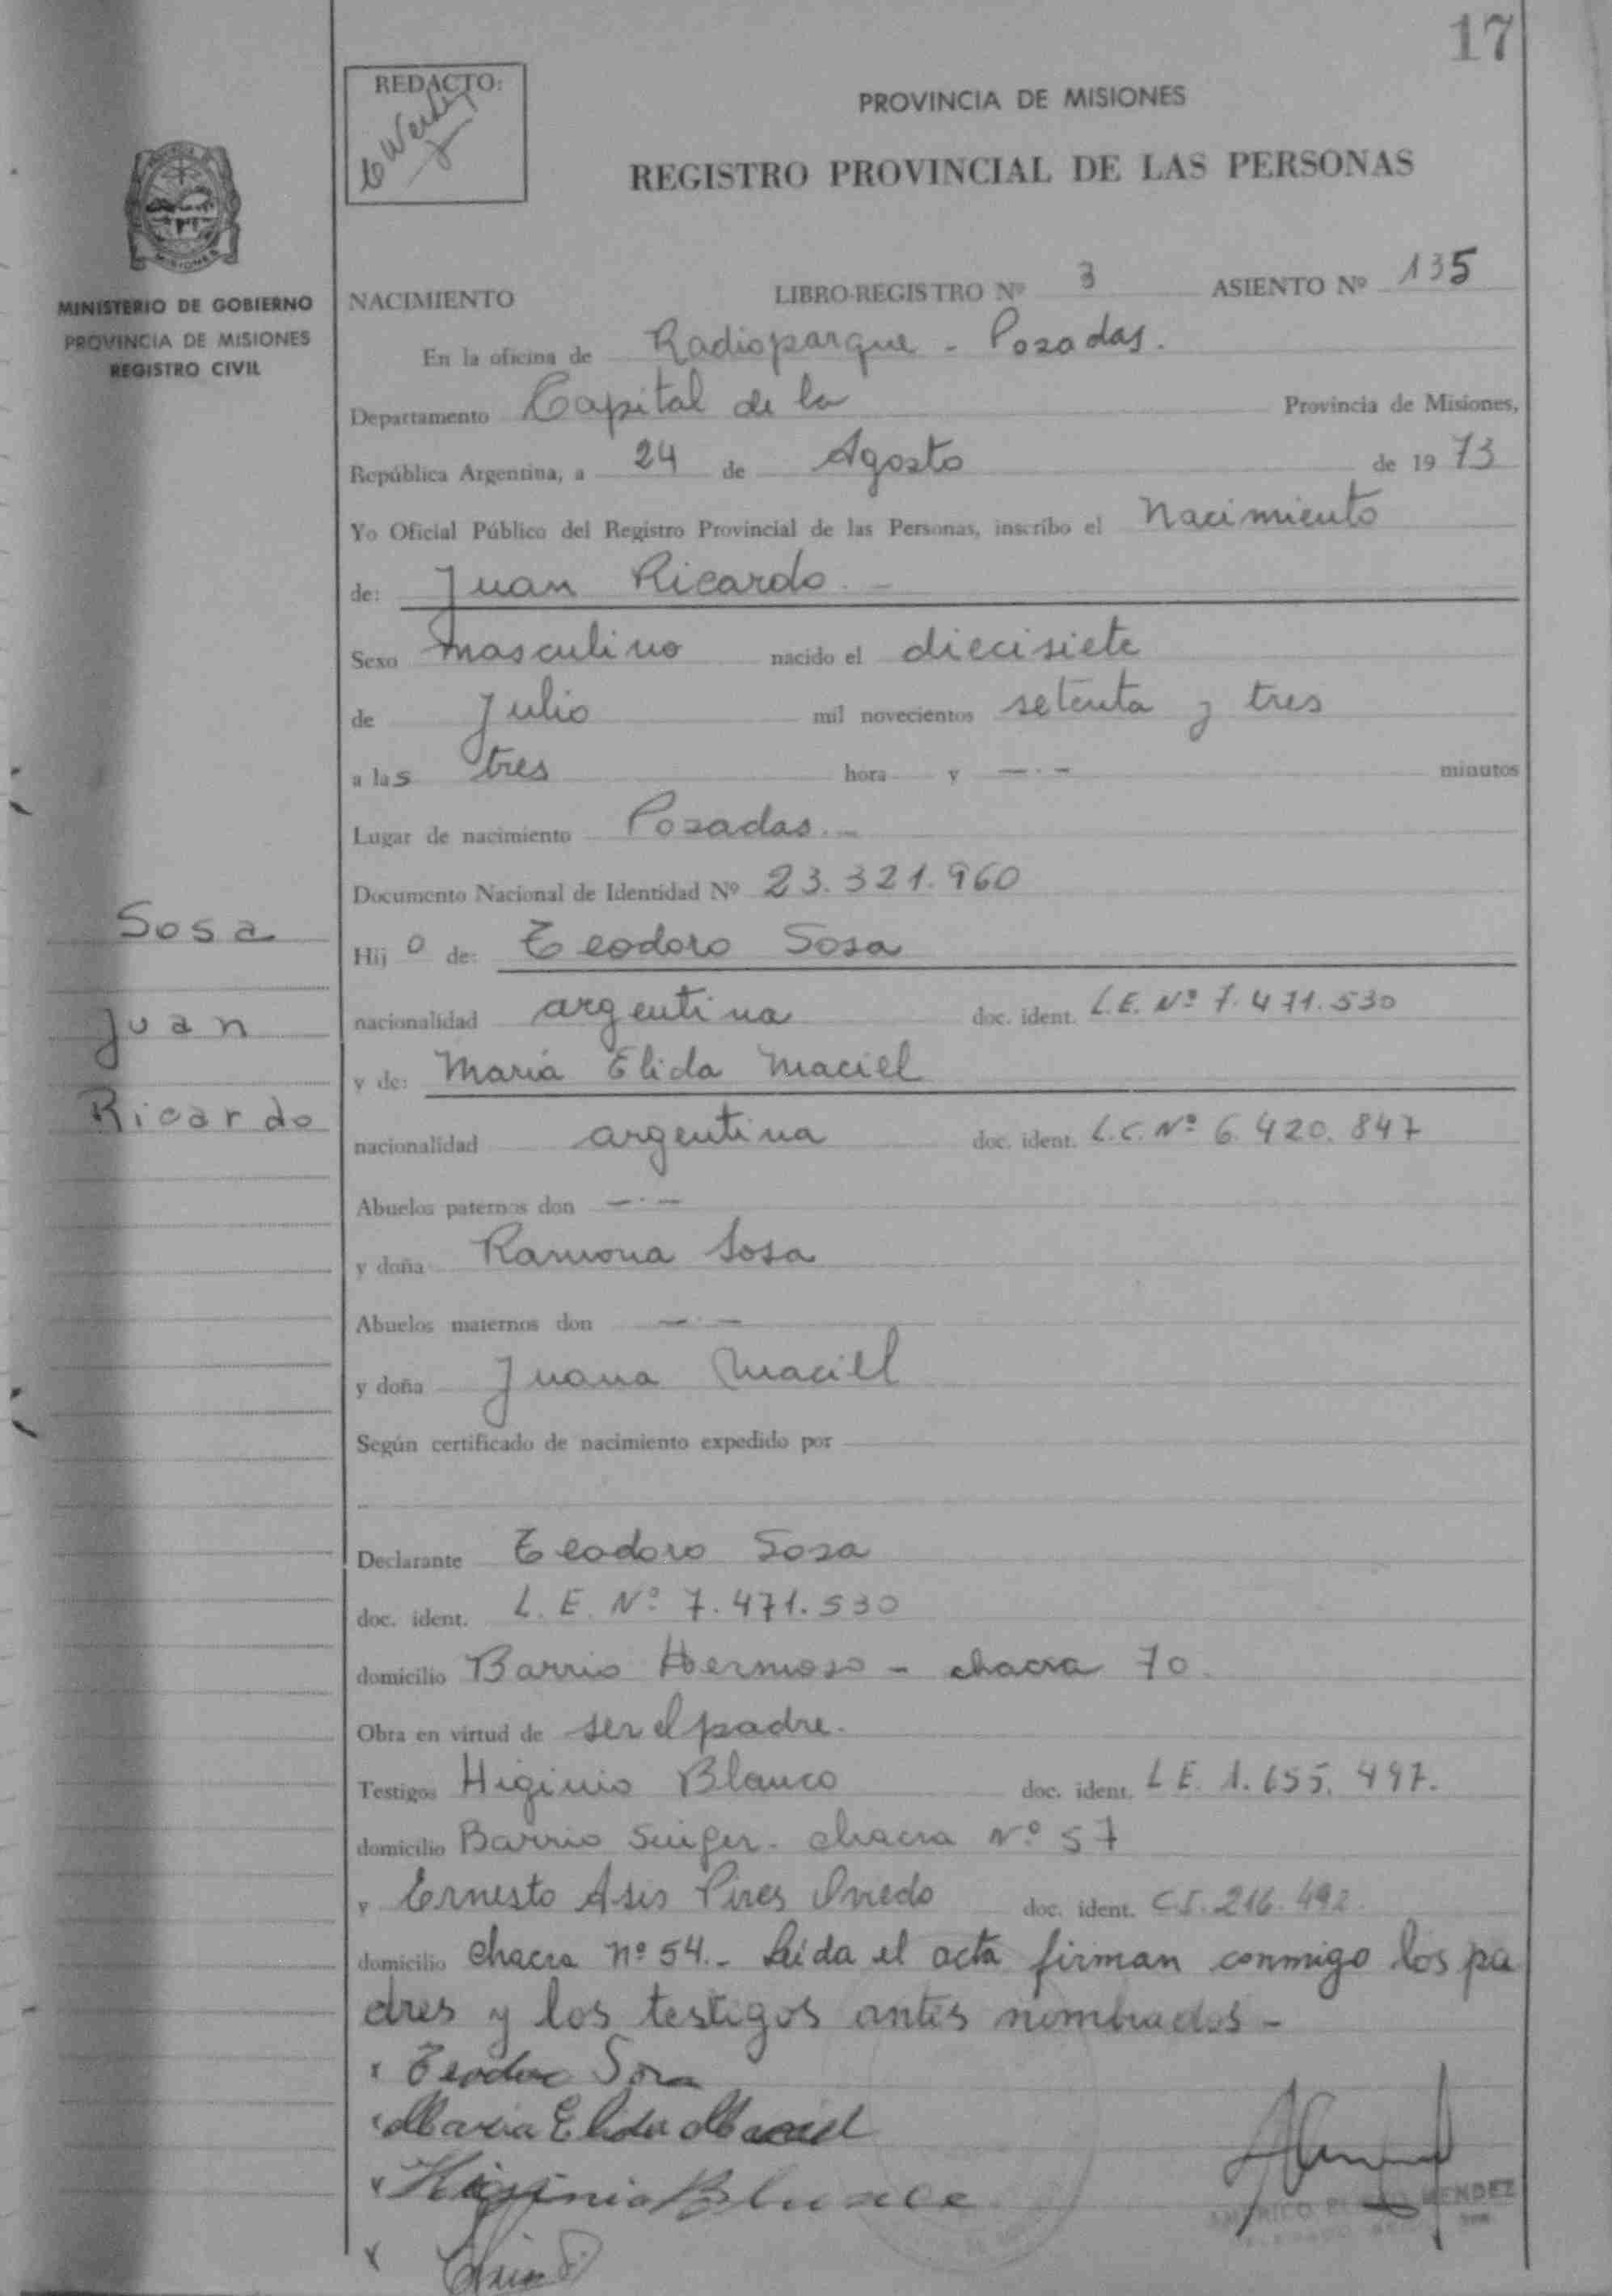 17
REDACTO:
PROVINCIA DE MISIONES
REGISTRO PROVINCIAL DE LAS PERSONAS
MISIONES
MINISTERIO DE GOBIERNO
PROVINCIA DE MISIONES
REGISTRO CIVIL
NACIMIENTO LIBRO-REGISTRO Nº 3 ASIENTO Nº 135
En la oficina de Radioparque - Posadas.
Departamento Capital de la Provincia de Misiones,
República Argentina, a 24 de Agosto de 1973
Yo Oficial Público del Registro Provincial de las Personas, inscribo el Nacimiento
de: Juan Ricardo. -
Sexo masculino nacido el diecisiete
de Julio mil novecientos setenta y tres
a las tres hora y -.- minutos
Lugar de nacimiento Posadas.-
Documento Nacional de Identidad Nº 23.321.960
Sosa
Hijo de: Teodoro Sosa
nacionalidad argentina doc. ident. L.E. Nº 7.471.530
Juan
y de: Maria Elida Maciel
Ricardo
nacionalidad argentina doc. ident. L.C. Nº 6.420.847
Abuelos paternos don -.-
y doña Ramona Sosa
Abuelos maternos don -.-
y doña Juana Maciel
Según certificado de nacimiento expedido por
Declarante Teodoro Sosa
doc. ident. L.E. Nº 7.471.530
domicilio Barrio Hermoso - chacra 70.
Obra en virtud de ser el padre.
Testigos Higinio Blanco doc. ident. L E. 1.655.497.
domicilio Barrio Singer - chacra Nº 57
y Ernesto Asis Pires doc. ident. C.I. 216.492.
domicilio chacra nº 54.- Leida el acta firman conmigo los pa
dres y los testigos antes nombrados -
x Teodoro Sosa
x Maria Elida Maciel
x Higinio Blance
x
MENDEZ